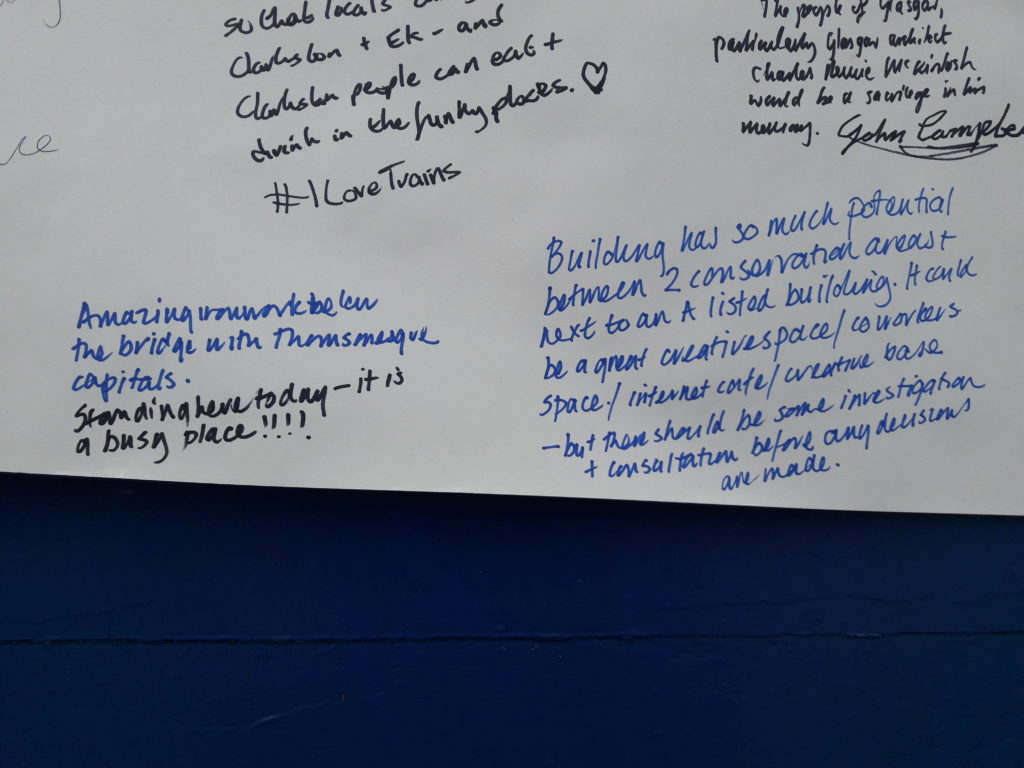 so that locals
Clarkston + EK - and
Clarkston people can eat +
drink in the funky places. ♡
#ILoveTrains
The people of Glasgow,
particularly Glasgow architect
Charles Rennie McKintosh
would be a sacrilege in his
memory. John Campbe
Amazing ironwork below
the bridge with Thomsonesque
capitals.
Standing here today - it is
a busy place!!!!
Building has so much potential
between 2 conservation areas +
next to an A listed building. It could
be a great creative space/ coworkers
space./ internet cafe/ creative base
- but there should be some investigation
+ consultation before any decisions
are made.